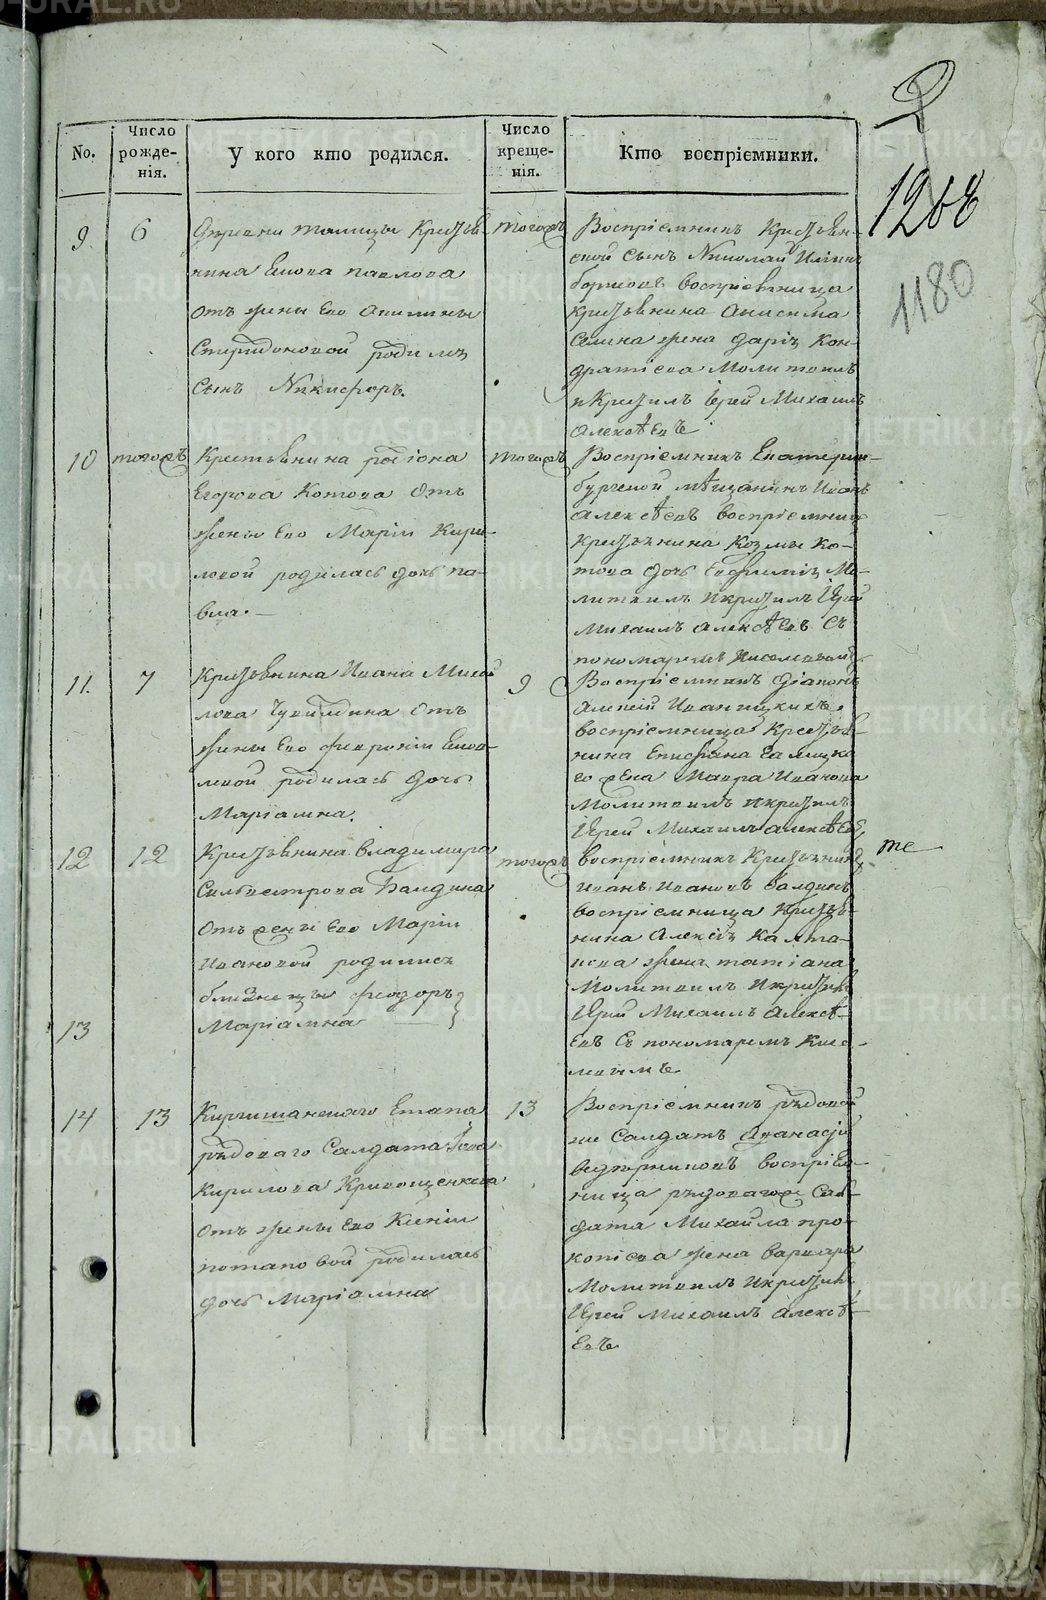 2
1268
1180
No.
Число рожде-нія.
У кого кто родился.
Число креще-нія.
Кто воспріемники.
9. 6
Деревни талицы Крестья-
нина Павлова
отъ жены Его Акилины
Спиридоновой родилъ
Сынъ Никифоръ.
тогожъ
Воспріемникъ Крестьян-
ской Сынъ Николай Ильинъ
воспріемница
Крестьянина Анисима
жена Дарія Кон-
дратіева Молитвилъ
и Крестилъ Іерей Михаилъ
Алексѣевъ
10 тогожъ
Крестьянина родіона
Егорова Котова Отъ
жены Его Маріи Кири-
ловой родилась дочь па-
вла.
тогожъ
Воспріемникъ Екатерин-
бургской мѣщанинъ Иванъ
Алексѣевъ воспріемница
Крестьянина Козмы Ко-
това дочь Евфимія Мо-
литвилъ и крестилъ Іерей
Михаилъ Алексѣевъ Съ
пономаремъ Киселевымъ
11. 7
Крестьянина Ивана Михай
лова отъ
жены Его февроніи
родилась дочь
Маріамна.
9
Воспріемникъ діаконъ
Алексій Иваницкихъ
воспріемница Крестья-
нина
го жена Мавра Иванова
Молитвилъ и крестилъ
Іерей Михаилъ Алексѣевъ
12 12
Крестьянина владимира
Сильвестрова Балдина
Отъ жены Его Маріи
Ивановой родились
близнецы феодоръ
13
Маріамна
тогожъ
воспріемникъ Крестьянинъ
Иванъ Ивановъ Балдинъ
воспріемница Крестья-
нина Алексія
жена татіана
Молитвилъ и крестилъ
Іерей Михаилъ Алексѣ-
евъ Съ пономаремъ Кисе-
левымъ
те
14 13
Киргишанскаго Етапа
рядоваго Салдата
Кирилова Кривощекова
отъ жены Его Ксеніи
потаповой родилась
дочь Маріамна
13
Воспріемникъ рядовой
же Салдатъ Афанасій
воспріем-
ница рядовагоже Сал-
дата Михайла про-
копіева жена варвара
Молитвилъ и крестилъ
Іерей Михаилъ Алексѣ-
евъ
METRIKI.GASO-URAL.RU